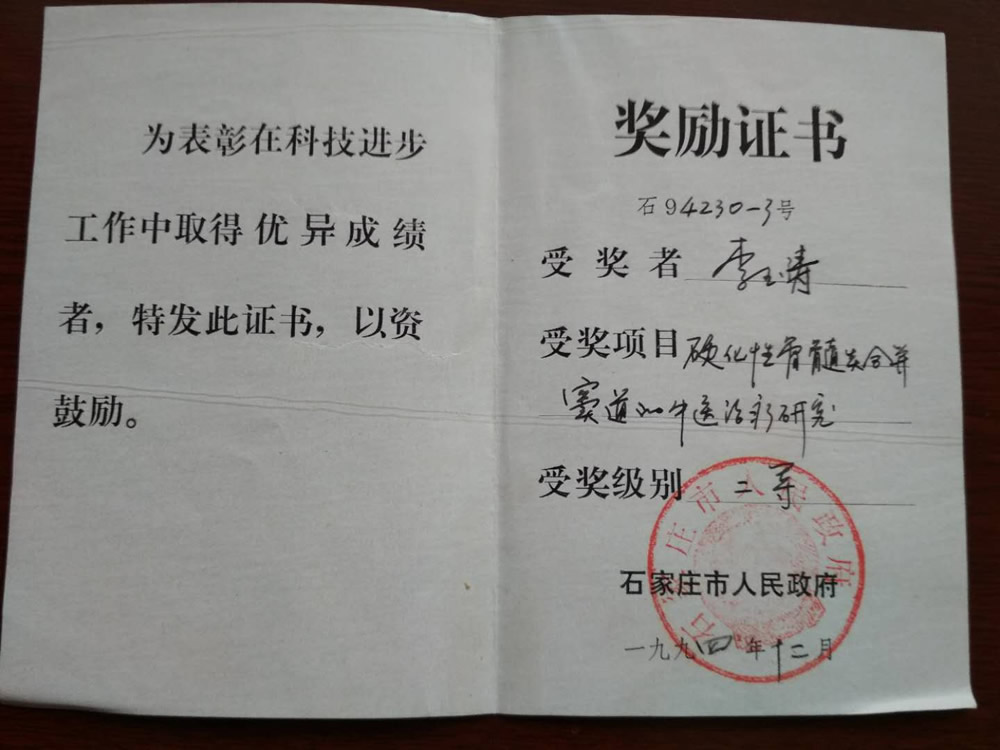 为表彰在科技进步
工作中取得优异成绩
者，特发此证书，以资
鼓励。
奖励证书
石94230-3号
受奖者 李玉涛
受奖项目 硬化性骨髓炎合并
窦道的中医治疗研究
受奖级别 二等
石家庄市人民政府
石家庄市人民政府
一九九四年十二月